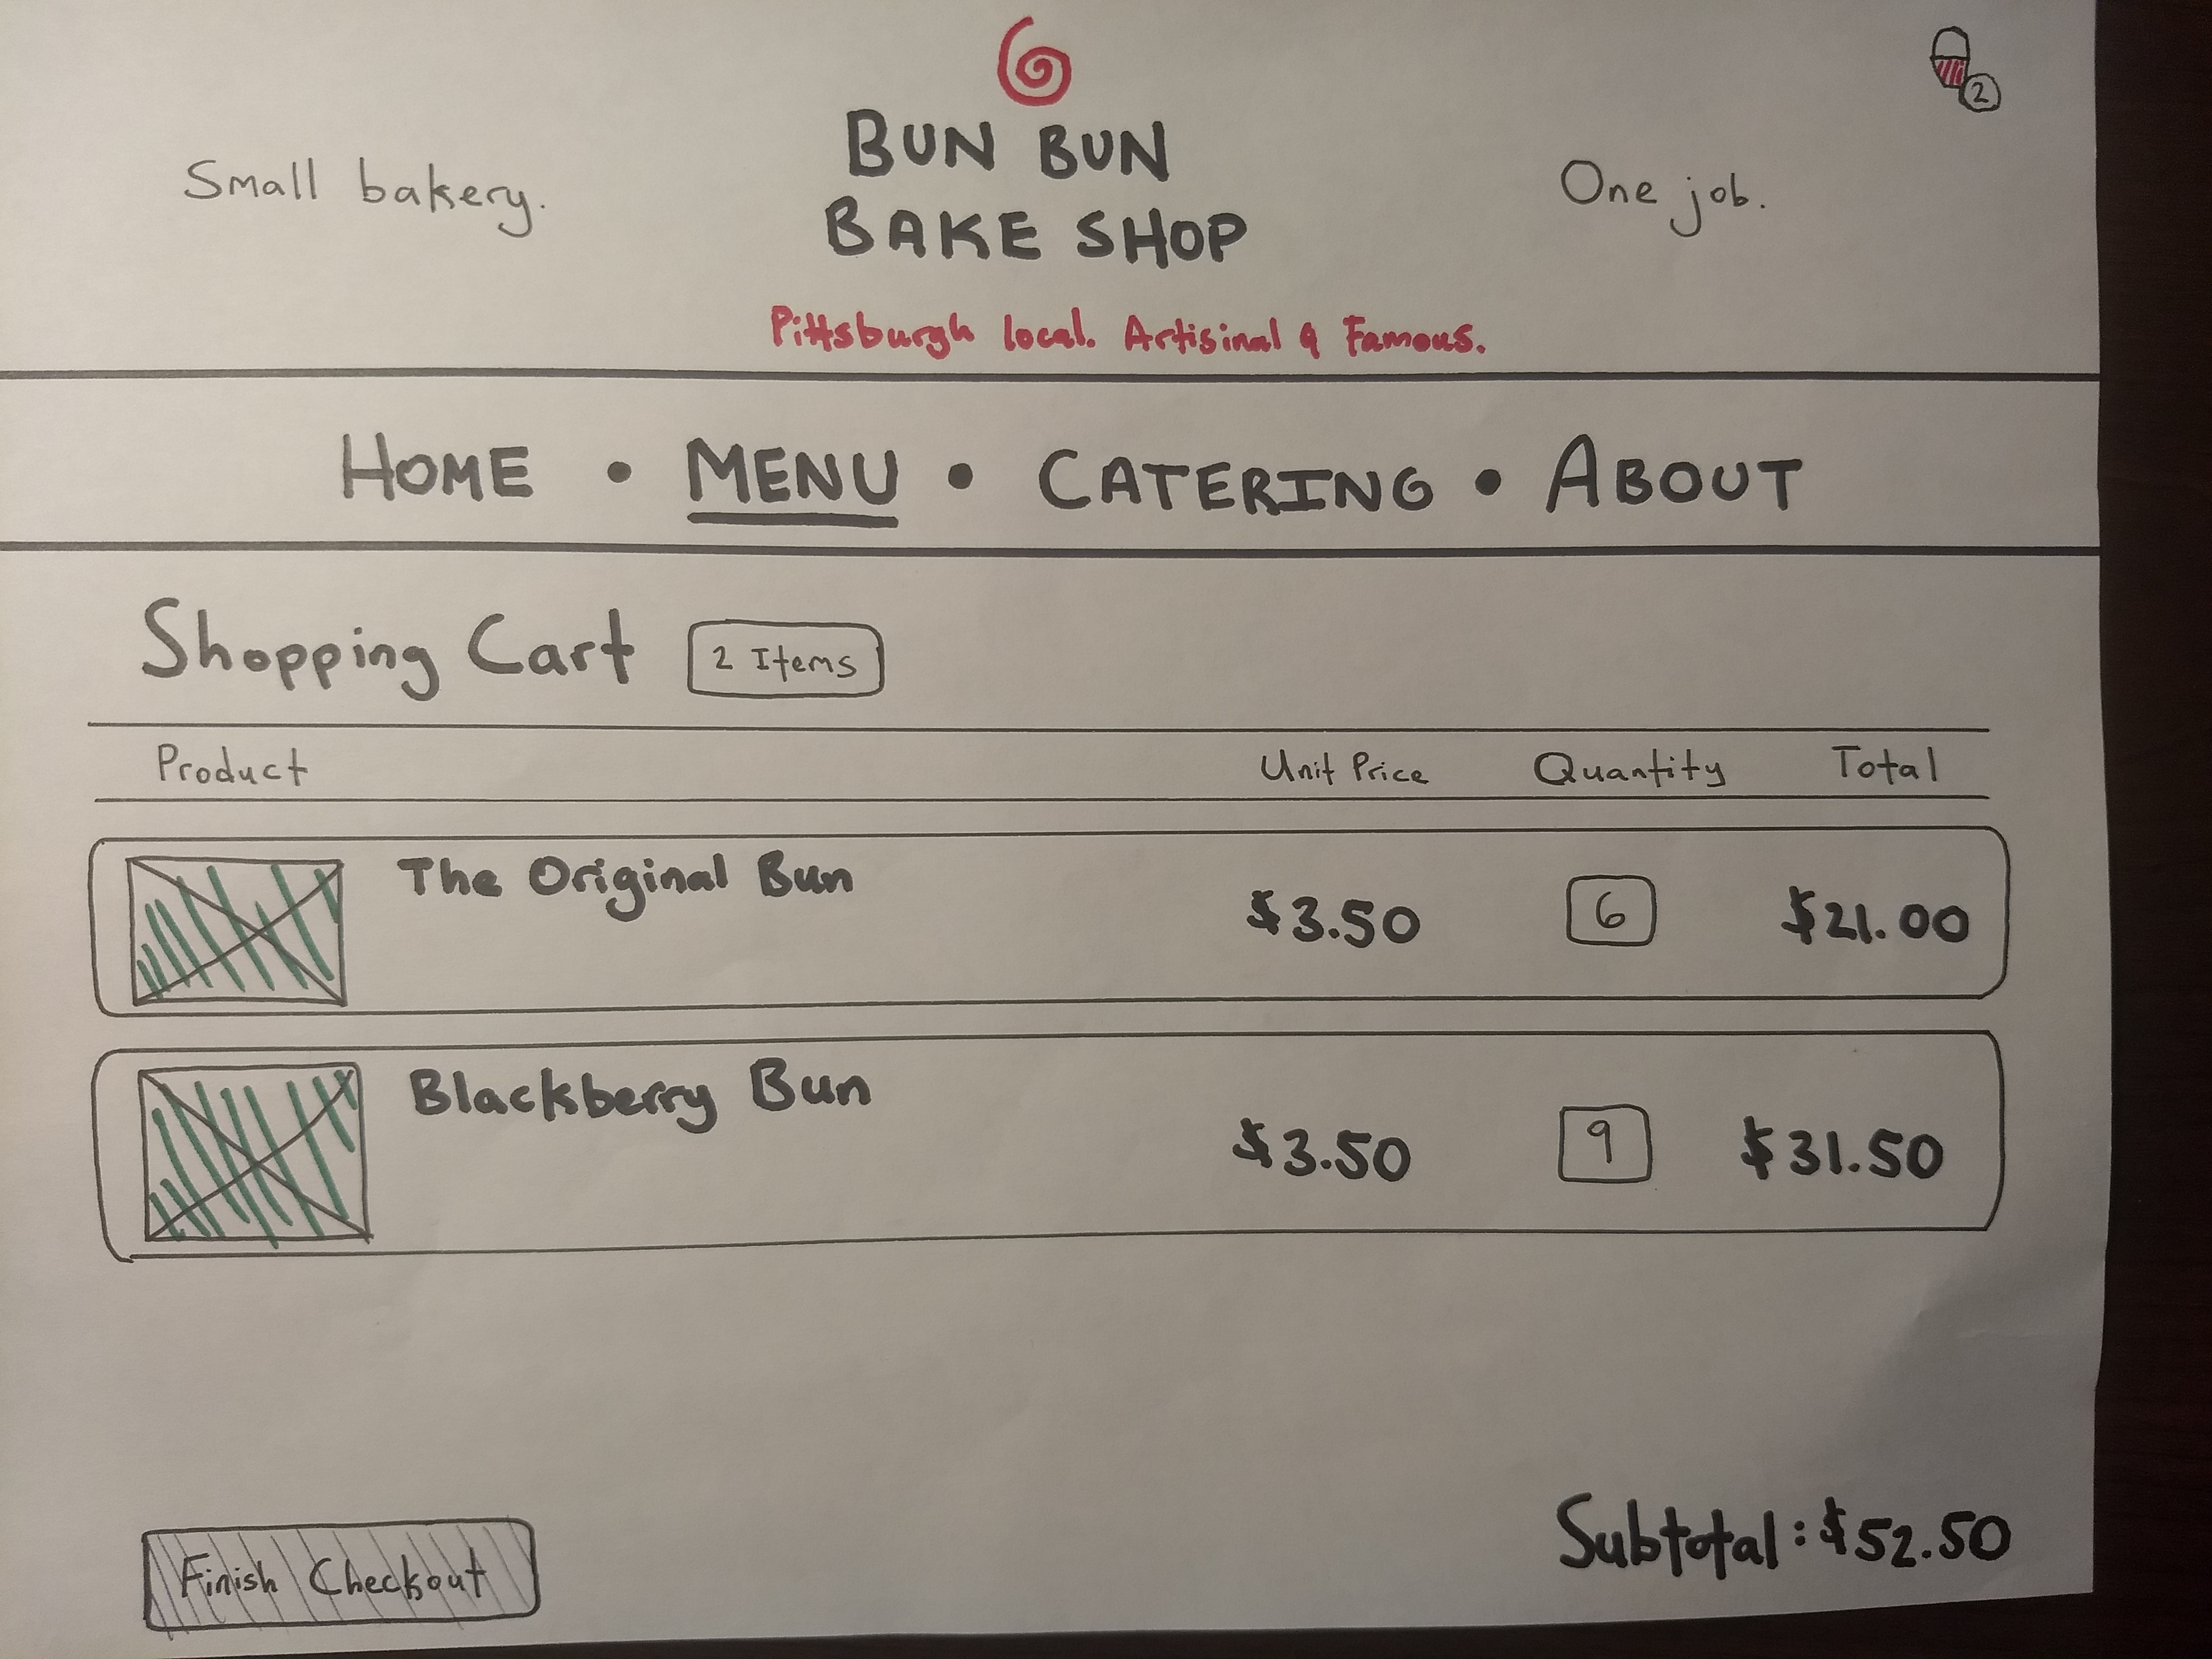 2
BUN BUN
BAKE SHOP
Small bakery.
One job.
Pittsburgh local. Artisinal & Famous.
HOME • MENU • CATERING • ABOUT
Shopping Cart 2 Items
Product Unit Price Quantity Total
The Original Bun $3.50 6 $21.00
Blackberry Bun $3.50 9 $31.50
Finish Checkout Subtotal: $52.50